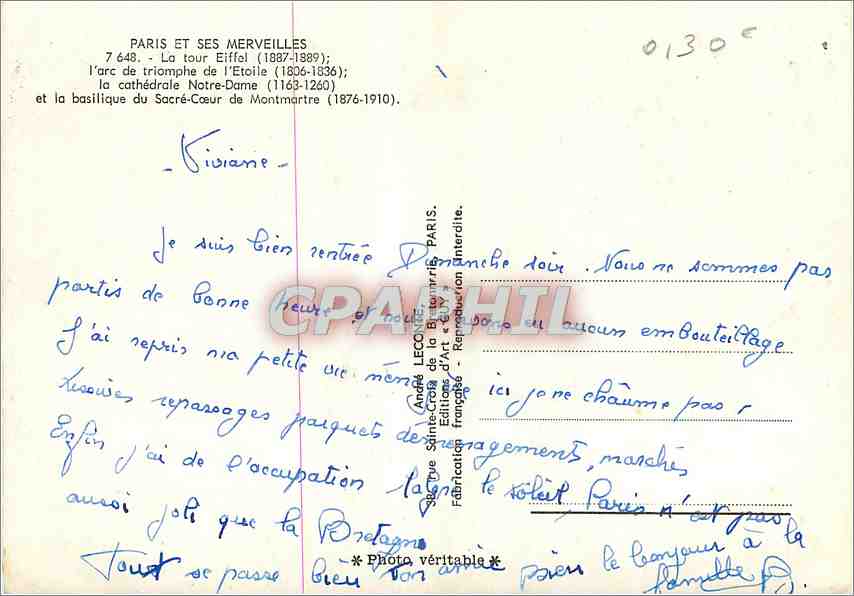 PARIS ET SES MERVEILLES
7 648. - La tour Eiffel (1887-1889);
l'arc de triomphe de l'Etoile (1806-1836);
la cathédrale Notre-Dame (1163-1260)
et la basilique du Sacré-Cœur de Montmartre (1876-1910).
0,30€
- Viviane -
Je suis bien rentrée Dimanche soir. Nous ne sommes pas
partis de bonne heure et nous avons eu aucun embouteillage
J'ai repris ma petite vie ici je ne chaume pas
repassages parquets déménagements, marchés
Enfin j'ai de l'occupation malgré le soleil, Paris n'est pas
aussi joli que la Bretagne
Tout se passe bien Ton amie bien le bonjour à la
famille
CPAPHIL
André LECONTE,
38, rue Sainte-Croix de la Bretonnerie, PARIS.
Editions d'Art « GUY »
Fabrication française - Reproduction interdite.
* Photo véritable *